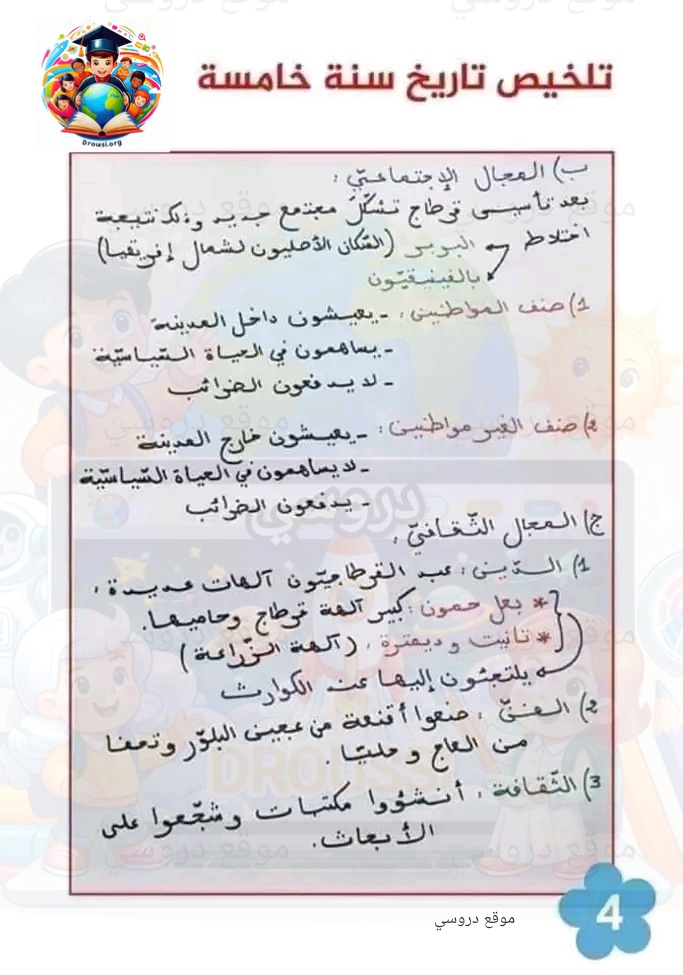 تلخيص تاريخ سنة خامسة
Drousi.org
ب) المجال الإجتماعيّ :
بعد تأسيس قرطاج تشكّل مجتمع جديد وذلك نتيجة
اختلاط البربر (السّكان الأصليون لشمال إفريقيا)
بالفينيقيّون
1) صنف المواطنين : - يعيشون داخل المدينة
- يساهمون في الحياة السّياسيّة
- لا يدفعون الضرائب
2) صنف الغير مواطنين : - يعيشون خارج المدينة
- لا يساهمون في الحياة السّياسيّة
- يدفعون الضرائب
ج) المجال الثّقافيّ :
1) الدّين : عبد القرطاجيّون آلهات عديدة :
* بعل حمون : كبير آلهة قرطاج وحاميها.
* تانيت و ديمترة : (آلهة الزّراعة)
يلتجئون إليها عند الكوارث
2) الفنّ : صنعوا أقنعة من عجين البلّور وتحفا
من العاج و حليّا .
3) الثّقافة : أنشؤوا مكتبات وشجّعوا على
الأبحاث.
موقع دروسي
4
دروسي
DROUSSI
موقع دروسي